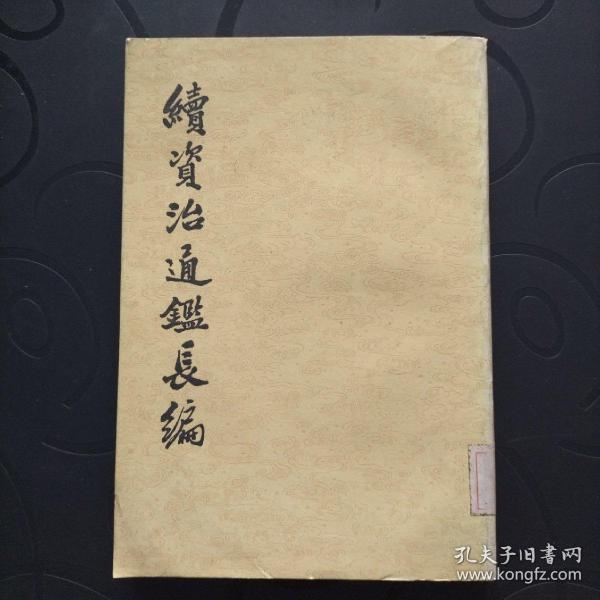 續資治通鑑長編
孔夫子旧书网
www.kongfz.com